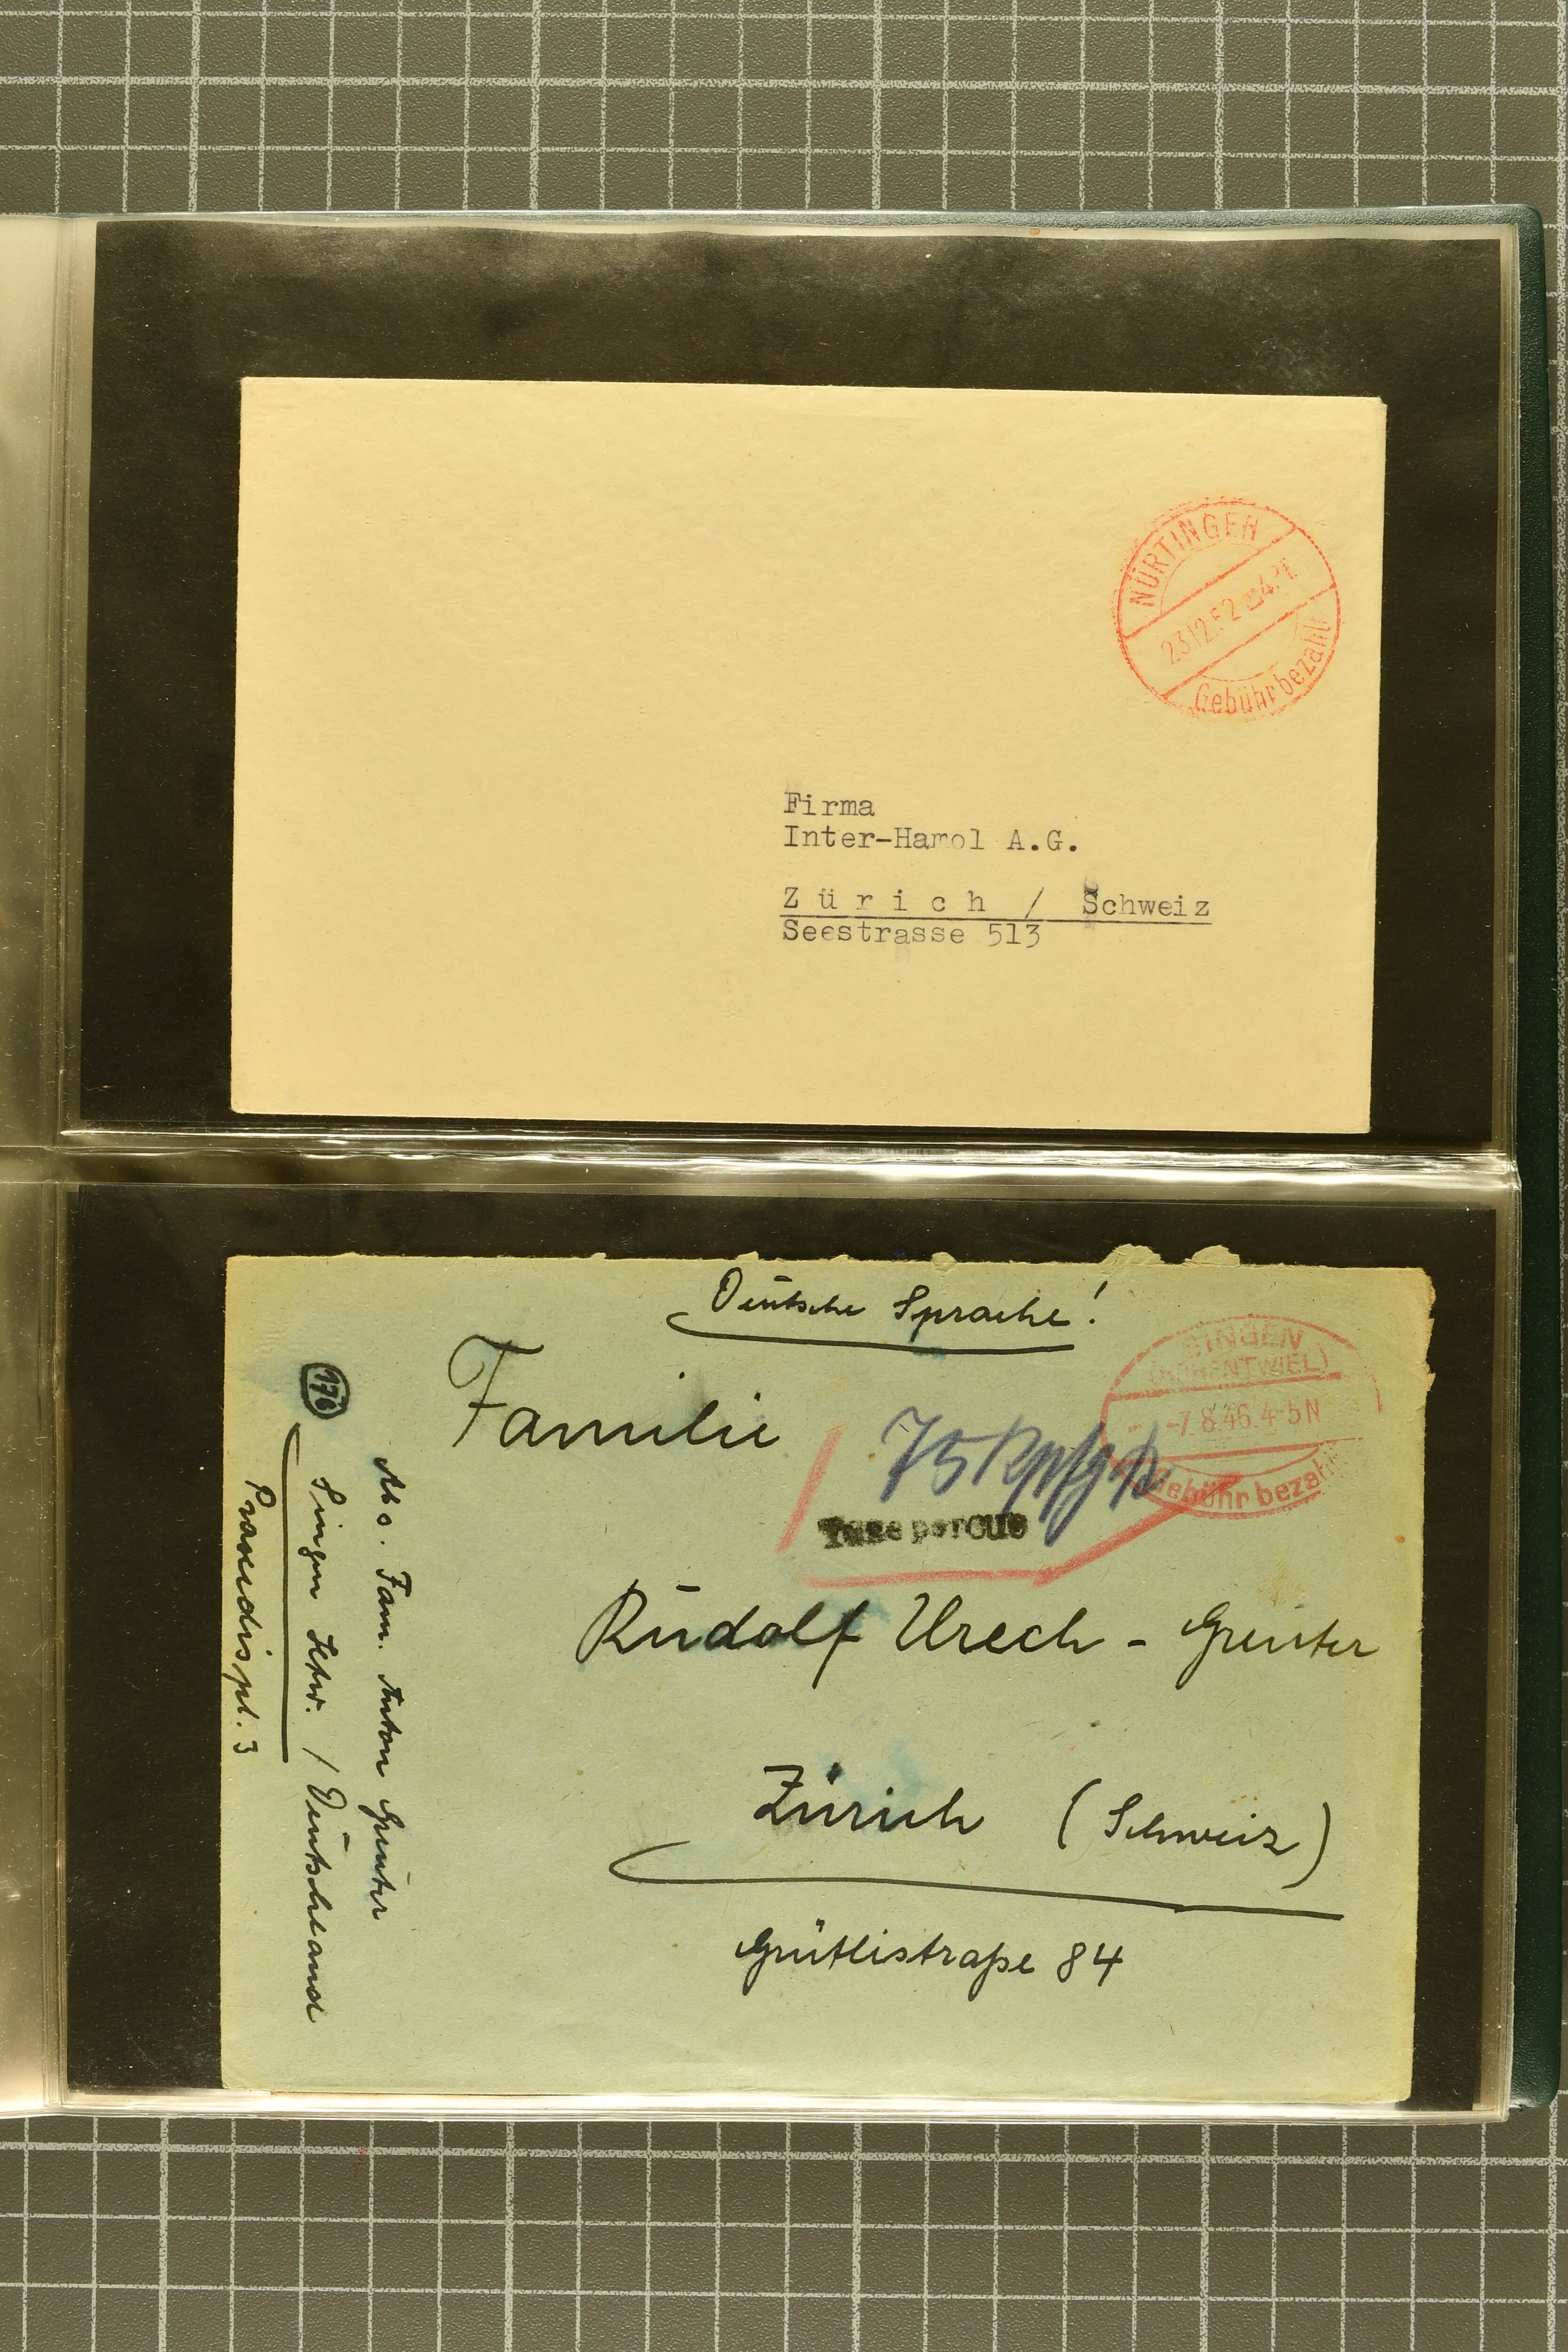 NÜRTINGEN
23.12.52
Gebühr bezahlt
Firma
Inter-Hamol A.G.
Zürich / Schweiz
Seestrasse 513
Deutsche Sprache!
SINGEN
(HOHENTWIEL)
-7.8.46.4-5N
Gebühr bezahlt
Familie
75 Rpfg
Taxe percue
Rudolf Urech - Greuter
Zürich (Schweiz)
Grütlistraße 84
176
Abs. Fam. Anton Greuter
Singen Htw. / Deutschland
Praxedispl. 3